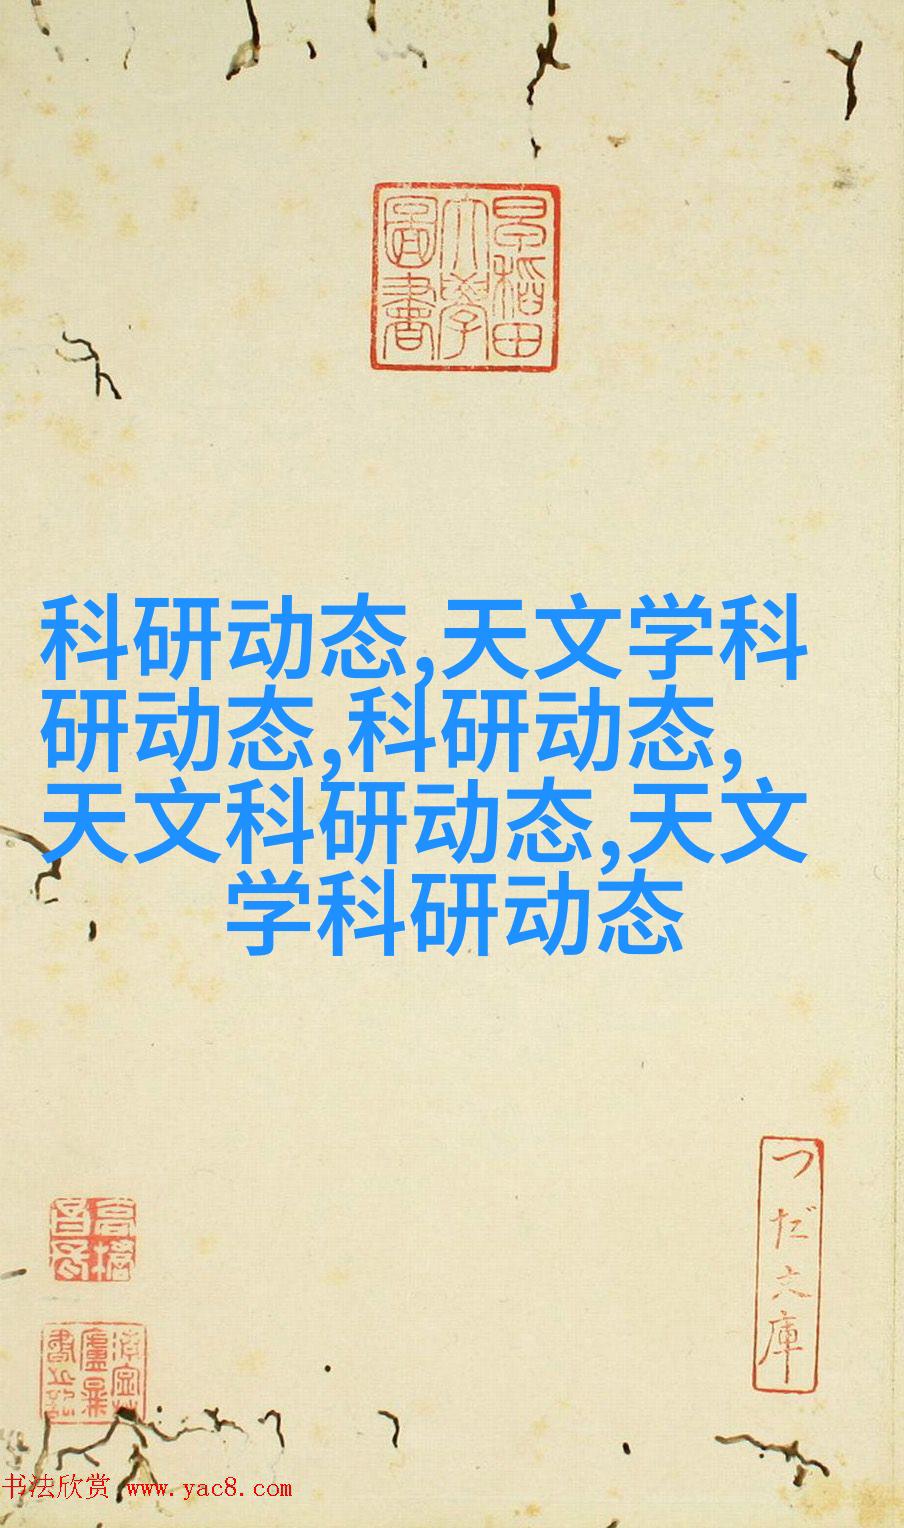 早稻田
大學
圖書
科研动态,天文学科
研动态,科研动态,
天文科研动态,天文
学科研动态
つだ文庫
书法欣赏 www.yac8.com